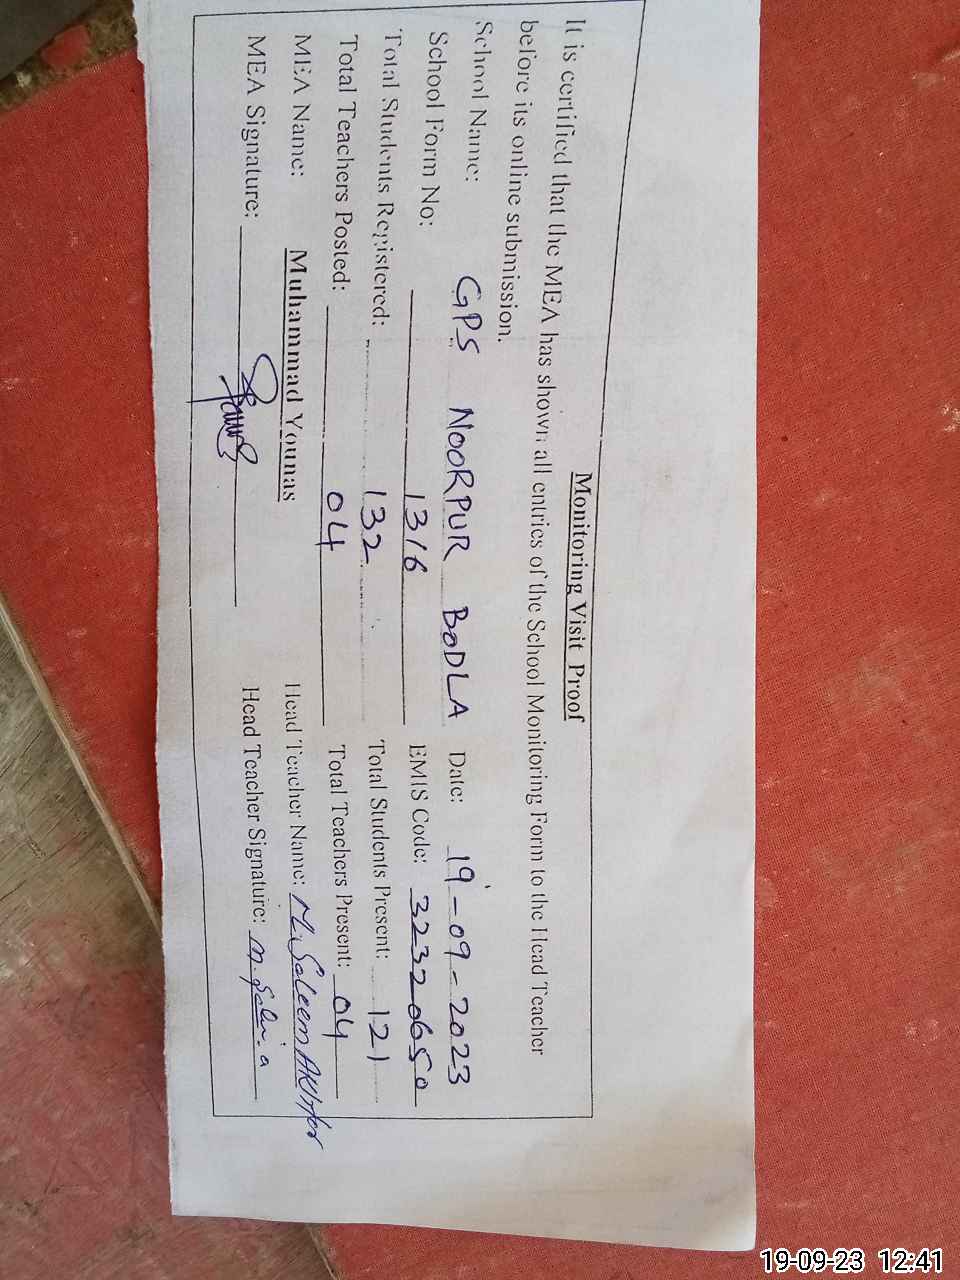 Monitoring Visit Proof
It is certified that the MEA has shown all entries of the School Monitoring Form to the Head Teacher
before its online submission.
School Name: GPS NOORPUR BODLA Date: 19-09-2023
School Form No: 1316 EMIS Code: 32320650
Total Students Registered: 132 Total Students Present: 121
Total Teachers Posted: 04 Total Teachers Present: 04
MEA Name: Muhammad Younas Head Teacher Name: M. Saleem Akhtar
MEA Signature: Head Teacher Signature:
19-09-23 12:41